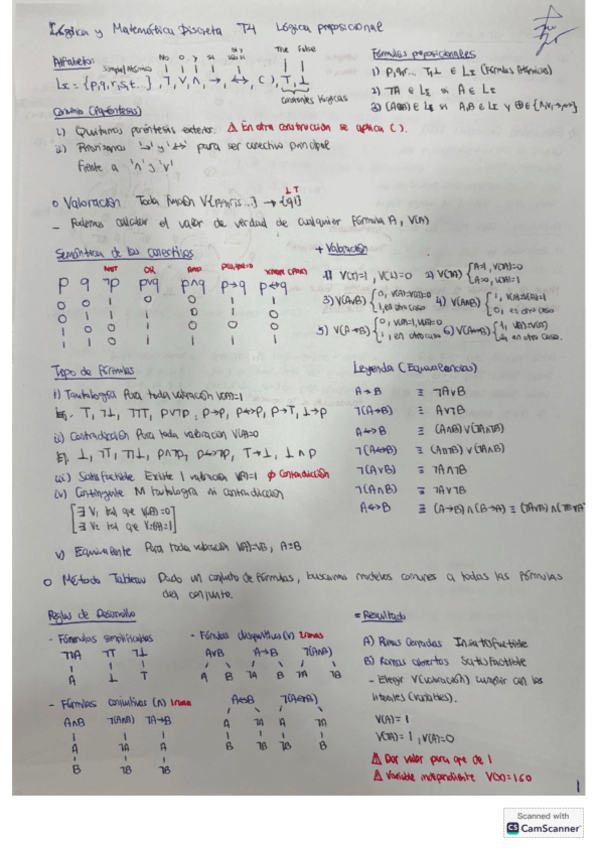 Lógica y Matemática Discreta T4 Lógica proposicional
Alfabeto:
No O y Si Si y solo si True False
L_Σ = {p,q,r,s,t...}, ¬, ∨, ∧, →, ↔, ( ), T, ⊥
constantes lógicas
Convenio (Paréntesis)
1) Quitamos paréntesis exterior. ⚠ En otra construcción se aplica ( ).
2) Priorizamos '→' y '↔' para ser conectivo principal
frente a '∧' y '∨'
Fórmulas proposicionales
1) p,q,r... T,⊥ ∈ L_Σ (Fórmulas Atómicas)
2) ¬A ∈ L_Σ si A ∈ L_Σ
o Valoración Toda función V{p,q,r,s...} → {0,1}
⊥ T
- Podemos calcular el valor de verdad de cualquier fórmula A, V(A)
Semántica de los conectivos
NOT OR AND
p q ¬p p∨q p∧q p→q p↔q
0 0 1 0 0 1 1
0 1 1 1 0 1 0
1 0 0 1 0 0 0
1 1 0 1 1 1 1
+ Valoración
1) V(T)=1, V(⊥)=0 2) V(¬A) { A=1, V(¬A)=0
A=0, V(¬A)=1
3) V(A∨B) { 0, V(A)=V(B)=0
1, en otro caso
4) V(A∧B) { 1, V(A)=V(B)=1
0, en otro caso
5) V(A→B) { 0, V(A)=1, V(B)=0
1, en otro caso
6) V(A↔B) { 1, V(A)=V(B)
0, en otro caso.
Tipo de Fórmulas
i) Tautología Para toda valoración V(A)=1
Ej. T, ¬⊥, ¬¬T, p∨¬p, p→p, p↔p, p→T, ⊥→p
ii) Contradicción Para toda valoración V(A)=0
Ej. ⊥, ¬T, ¬¬⊥, p∧¬p, p↔¬p, T→⊥, ⊥∧p
iii) Satisfactible Existe 1 valoración V(A)=1 Contradicción
iv) Contingente Ni tautología ni contradicción
∃ V1 tal que V1(A)=0
∃ V2 tal que V2(A)=1
v) Equivalente Para toda valoración V(A)=V(B), A≡B
Leyenda (Equivalencias)
A→B ≡ ¬A∨B
¬(A→B) ≡ A∧¬B
A↔B ≡ (A∧B)∨(¬A∧¬B)
¬(A↔B) ≡ (A∧¬B)∨(¬A∧B)
¬(A∨B) ≡ ¬A∧¬B
¬(A∧B) ≡ ¬A∨¬B
A↔B ≡ (A→B)∧(B→A) ≡
o Método Tableau Dado un conjunto de fórmulas, buscamos modelos comunes a todas las fórmulas
del conjunto.
Reglas de Desarrollo
- Fórmulas simplificables
¬¬A ¬T ¬⊥
A ⊥ T
- Fórmulas disyuntivas (∨) 2 ramas
A∨B A→B ¬(A∧B)
A B ¬A B ¬A ¬B
- Fórmulas conjuntivas (∧) 1 rama
A∧B ¬(A∨B) ¬(A→B)
A ¬A A
B ¬B ¬B
A↔B ¬(A↔B)
A ¬A A ¬A
B ¬B ¬B B
= Resultado
A) Ramas Cerradas Insatisfactible
B) Ramas abiertas Satisfactible
- Elegir V(valoración) cumplir con los
literales (variables).
V(A)=1
V(¬A)=1, V(A)=0
⚠ Dar valor para que de 1
⚠ Variable independiente V(x)=1 ó 0
1
Scanned with
CS CamScanner